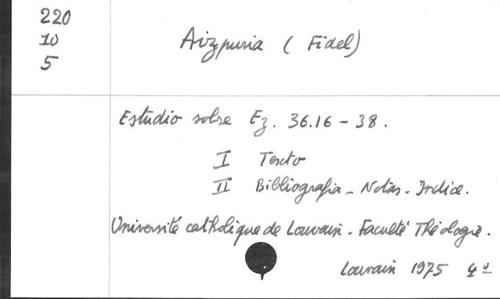 220
10
5
Aizpuria (Fidel)
Estudio sobre Ez. 36.16-38.
I Texto
II Bibliografia - Notas. Indice.
Université catholique de Louvain. Faculté Théologie.
Louvain 1975 4º